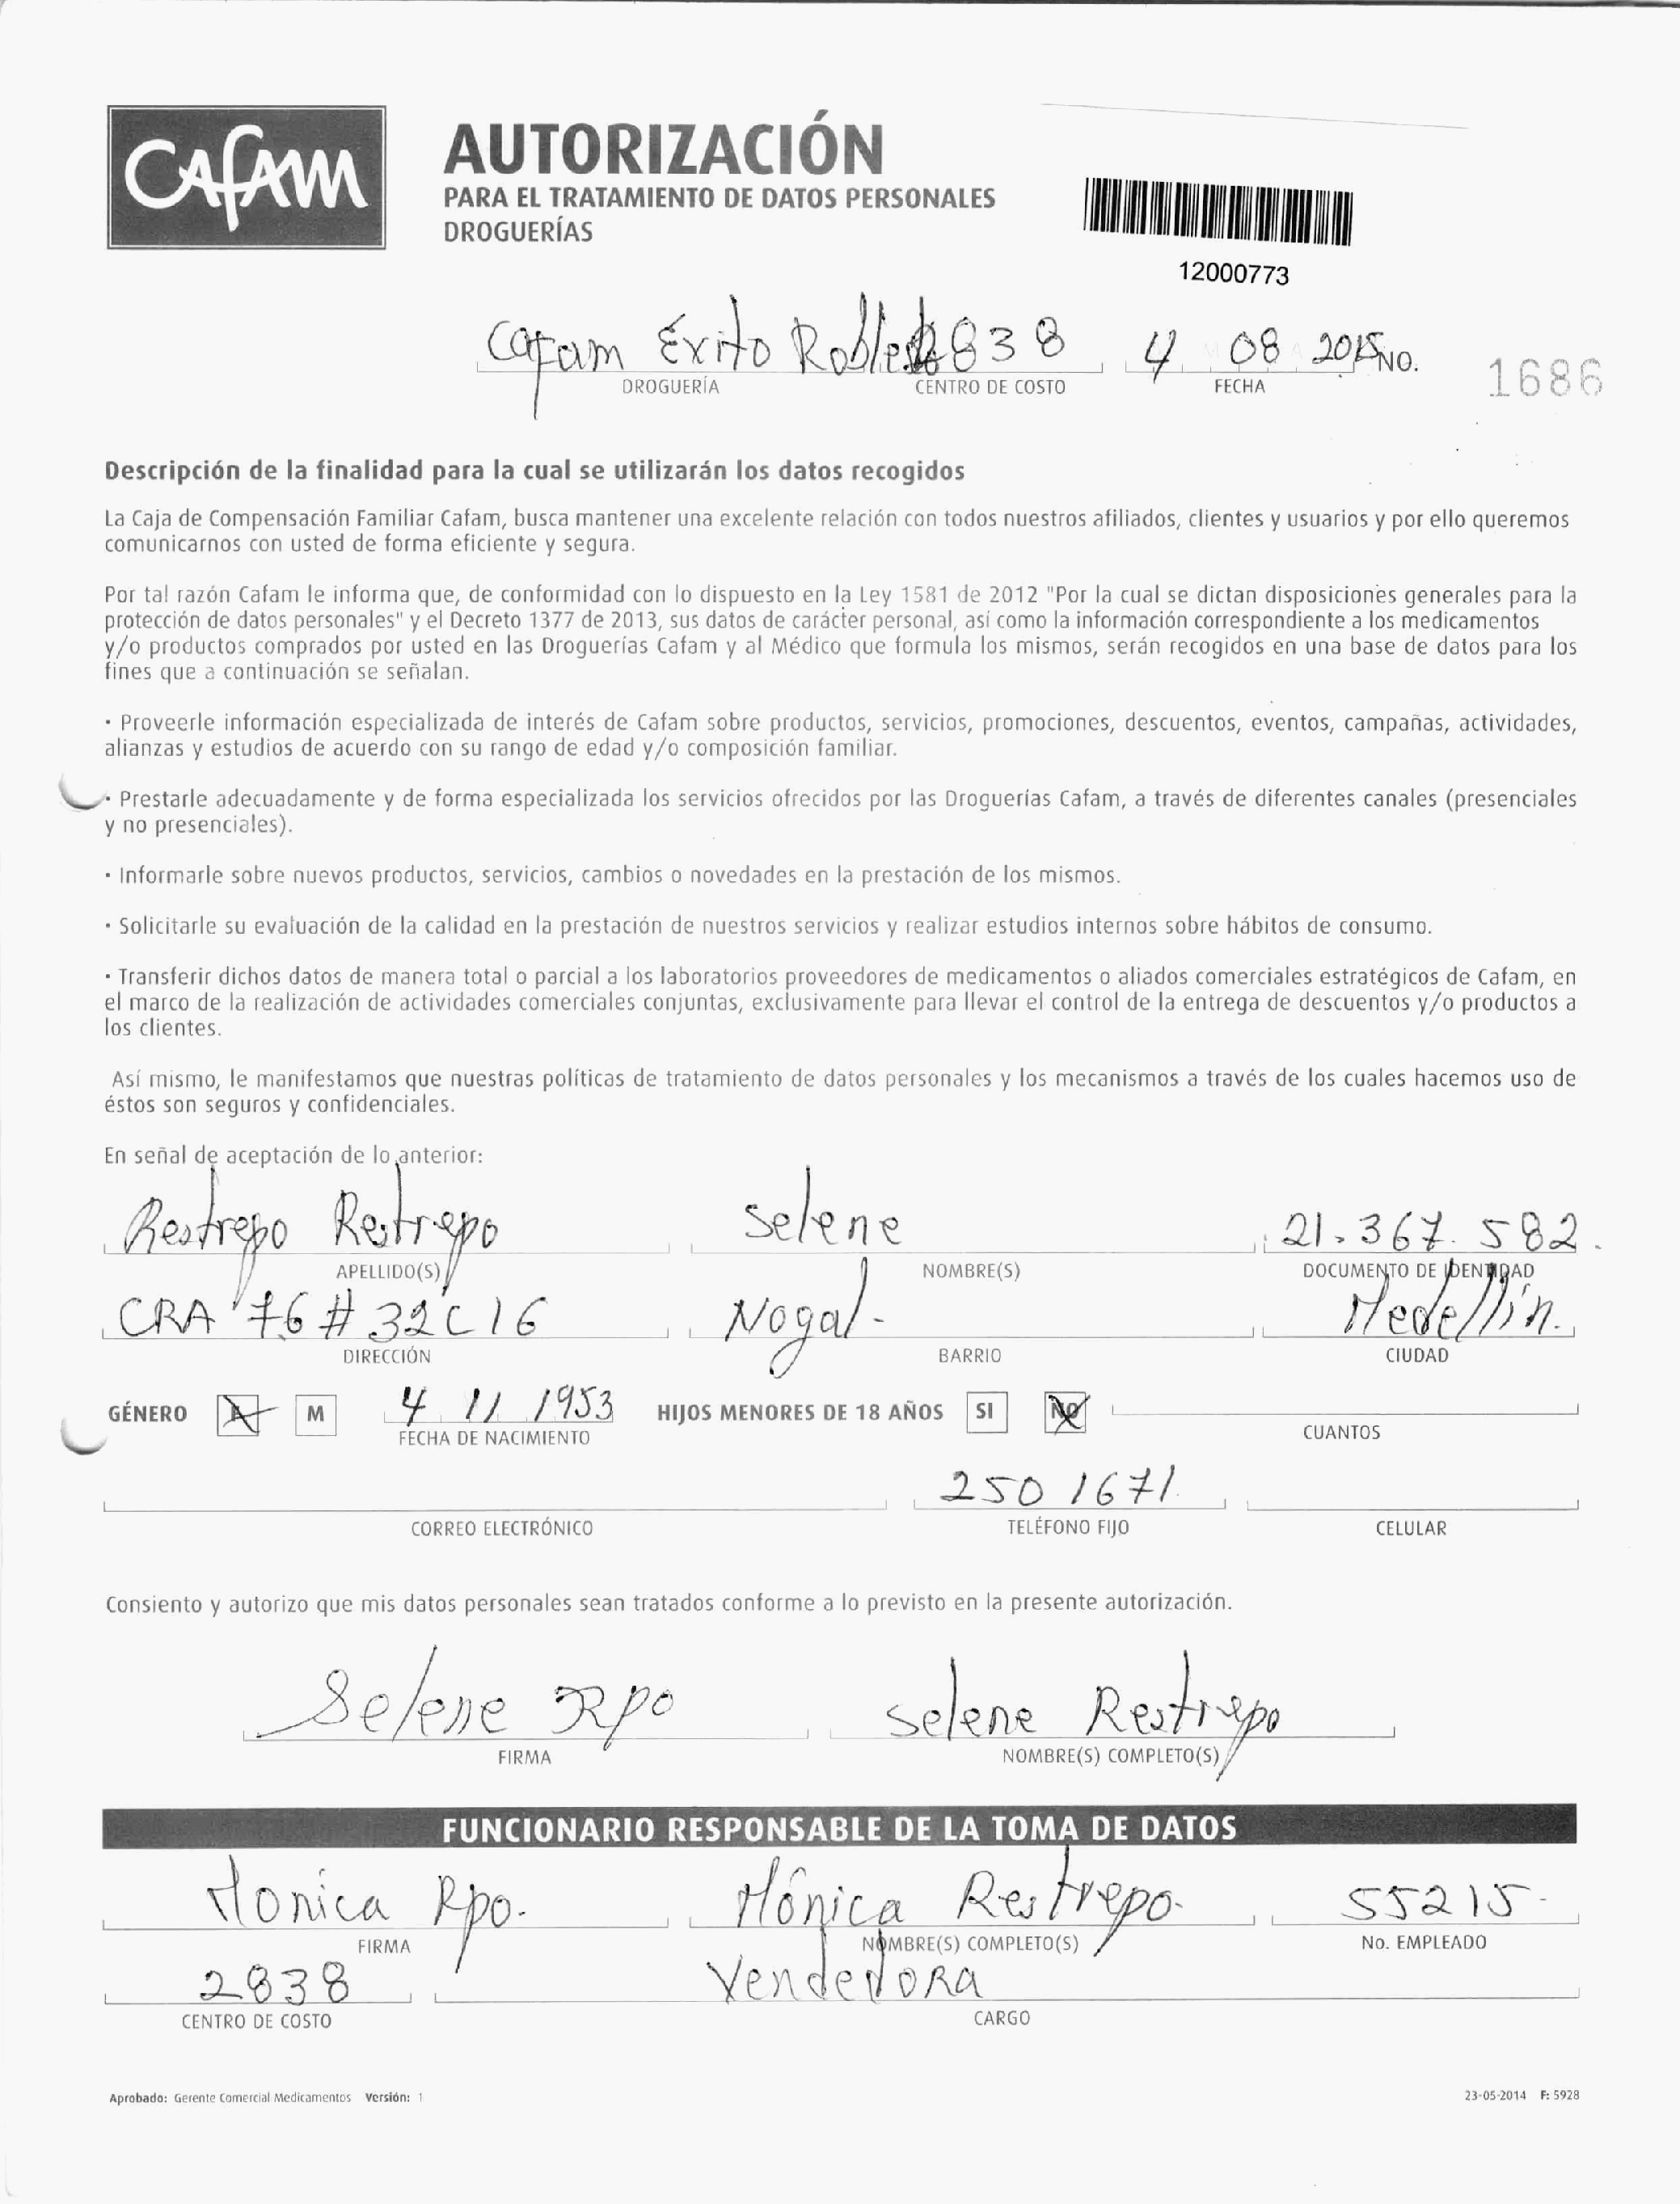 Cafam
AUTORIZACIÓN
PARA EL TRATAMIENTO DE DATOS PERSONALES
DROGUERÍAS
12000773
Cafam Éxito Robledo 2838 4 08 2015 NO. 1686
DROGUERÍA CENTRO DE COSTO FECHA
Descripción de la finalidad para la cual se utilizarán los datos recogidos
La Caja de Compensación Familiar Cafam, busca mantener una excelente relación con todos nuestros afiliados, clientes y usuarios y por ello queremos
comunicarnos con usted de forma eficiente y segura.
Por tal razón Cafam le informa que, de conformidad con lo dispuesto en la Ley 1581 de 2012 "Por la cual se dictan disposiciones generales para la
protección de datos personales" y el Decreto 1377 de 2013, sus datos de carácter personal, así como la información correspondiente a los medicamentos
y/o productos comprados por usted en las Droguerías Cafam y al Médico que formula los mismos, serán recogidos en una base de datos para los
fines que a continuación se señalan.
· Proveerle información especializada de interés de Cafam sobre productos, servicios, promociones, descuentos, eventos, campañas, actividades,
alianzas y estudios de acuerdo con su rango de edad y/o composición familiar.
· Prestarle adecuadamente y de forma especializada los servicios ofrecidos por las Droguerías Cafam, a través de diferentes canales (presenciales
y no presenciales).
· Informarle sobre nuevos productos, servicios, cambios o novedades en la prestación de los mismos.
· Solicitarle su evaluación de la calidad en la prestación de nuestros servicios y realizar estudios internos sobre hábitos de consumo.
· Transferir dichos datos de manera total o parcial a los laboratorios proveedores de medicamentos o aliados comerciales estratégicos de Cafam, en
el marco de la realización de actividades comerciales conjuntas, exclusivamente para llevar el control de la entrega de descuentos y/o productos a
los clientes.
Así mismo, le manifestamos que nuestras políticas de tratamiento de datos personales y los mecanismos a través de los cuales hacemos uso de
éstos son seguros y confidenciales.
En señal de aceptación de lo anterior:
Restrepo Restrepo Selene 21.367.582.
APELLIDO(S) NOMBRE(S) DOCUMENTO DE IDENTIDAD
CRA 76 # 32C16 Nogal- Medellín.
DIRECCIÓN BARRIO CIUDAD
GÉNERO F M 4 11 1953 HIJOS MENORES DE 18 AÑOS SI NO
FECHA DE NACIMIENTO CUANTOS
250 1671
CORREO ELECTRÓNICO TELÉFONO FIJO CELULAR
Consiento y autorizo que mis datos personales sean tratados conforme a lo previsto en la presente autorización.
Selene Rpo Selene Restrepo
FIRMA NOMBRE(S) COMPLETO(S)
FUNCIONARIO RESPONSABLE DE LA TOMA DE DATOS
Monica Rpo. Mónica Restrepo. 55215-
FIRMA NOMBRE(S) COMPLETO(S) No. EMPLEADO
2838 Vendedora
CENTRO DE COSTO CARGO
Aprobado: Gerente Comercial Medicamentos Versión: 1 23-05-2014 F: 5928